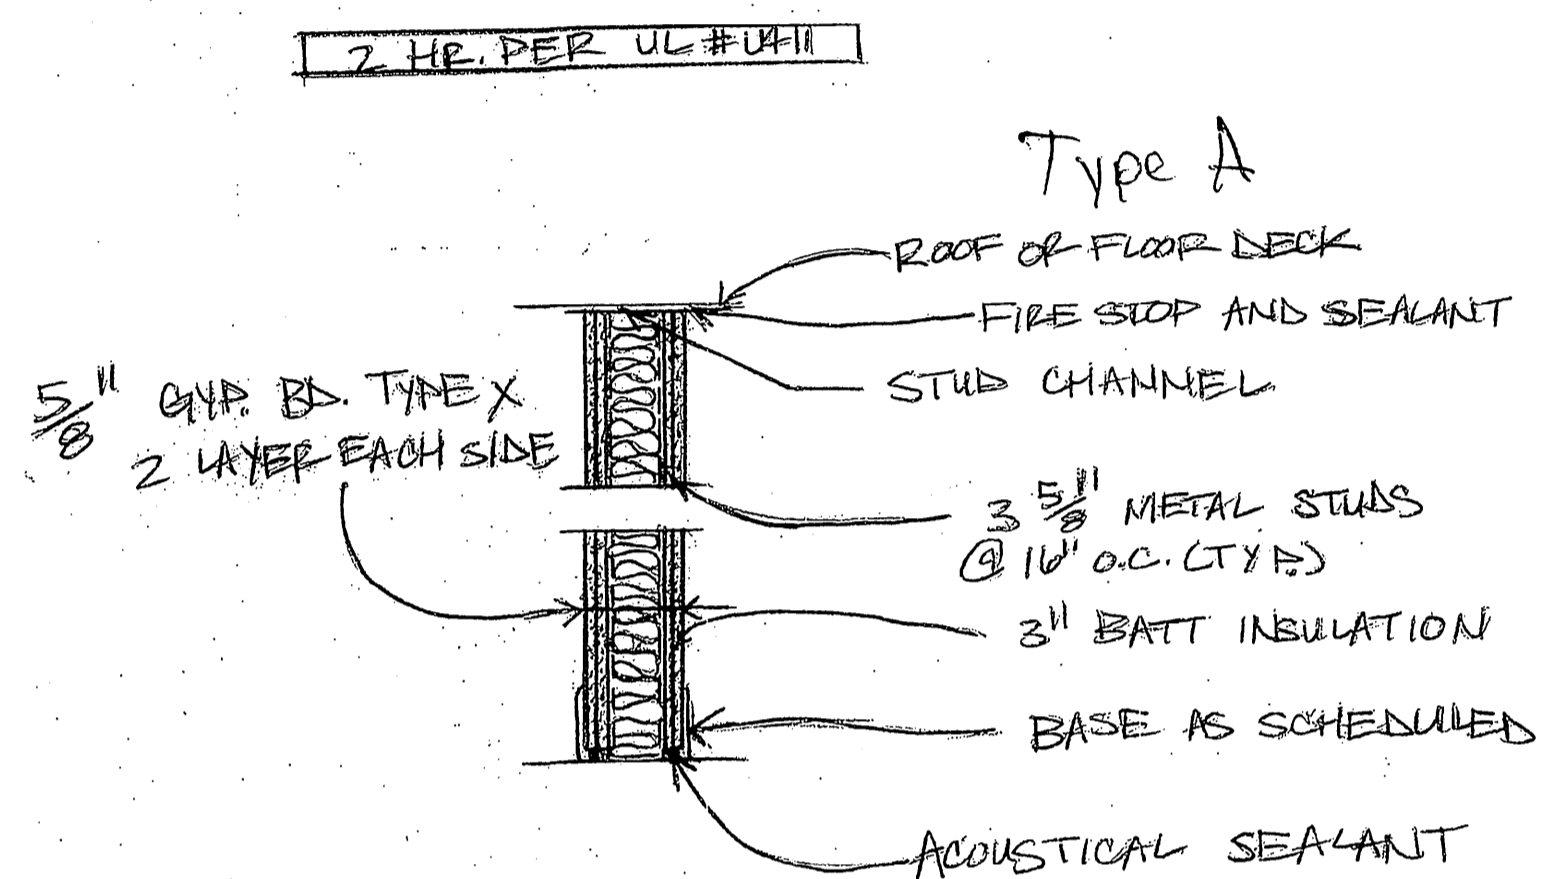 2 HR. PER UL #U411
Type A
ROOF OR FLOOR DECK
FIRE STOP AND SEALANT
STUD CHANNEL
5/8" GYP. BD. TYPE X
2 LAYER EACH SIDE
3 5/8" METAL STUDS
@ 16" O.C. (TYP.)
3" BATT INSULATION
BASE AS SCHEDULED
ACOUSTICAL SEALANT